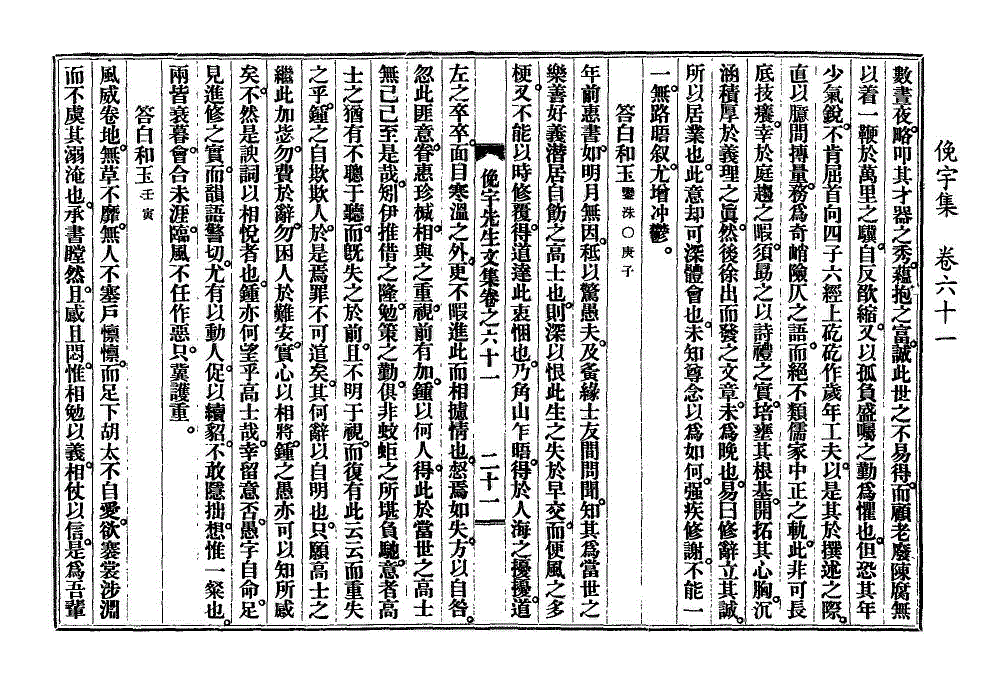 俛宇集　卷六十一
數晝夜。略叩其才器之秀。蘊抱之富。誠此世之不易得。而顧老廢陳腐無
以着一鞭於萬里之驥。自反欿縮。又以孤負盛囑之勤爲懼也。但恐其年
少氣銳。不肯屈首向四子六經上矻矻作歲年工夫。以是其於撰述之際。
直以臆間摶量。務爲奇峭險仄之語。而絕不類儒家中正之軌。此非可長
底技癢。幸於庭趨之暇。須勗之以詩禮之實。培壅其根基。開拓其心胸。沉
涵積厚於義理之眞。然後徐出而發之文章。未爲晚也。易曰修辭立其誠。
所以居業也。此意却可深體會也。未知尊念以爲如何。强疾修謝。不能一
一。無路晤叙。尤增冲鬱。
答白和玉 鑒洙○庚子
年前惠書。如明月無因。秪以驚愚夫。及夤緣士友間問聞。知其爲當世之
樂善好義潛居自飭之高士也。則深以恨此生之失於早交。而便風之多
梗。又不能以時修覆。得道達此衷悃也。乃角山乍晤。得於人海之擾擾。道
俛宇先生文集卷之六十一　二十一
左之卒卒。面目寒溫之外。更不暇進此而相攄情也。惄焉如失。方以自咎。
忽此匪意。眷惠珍椷。相與之重。視前有加。鍾以何人。得此於當世之高士
無已已至是哉。矧伊推借之隆。勉策之勤。俱非蚊蚷之所堪負馳。意者高
士之猶有不聰于聽。而旣失之於前。且不明于視。而復有此云云而重失
之乎。鍾之自欺欺人。於是焉罪不可道矣。其何辭以自明也。只願高士之
繼此加毖。勿費於辭。勿困人於難安。實心以相將。鍾之愚亦可以知所感
矣。不然是諛詞以相悅者也。鍾亦何望乎高士哉。幸留意否。愚字自命。足
見進修之實。而韻語警切。尤有以動人。促以續貂。不敢隱拙。想惟一粲也。
兩皆衰暮。會合未涯。臨風不任作惡。只冀護重。
答白和玉 壬寅
風威卷地。無草不靡。無人不塞戶懍懍。而足下胡太不自愛。欲褰裳涉淵
而不虞其溺淹也。承書瞠然。且感且悶。惟相勉以義。相仗以信。是爲吾輩